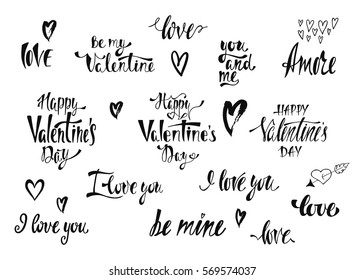 love
Be my
Valentine
love
you
and
me
Amore
Happy
Valentine's
Day
Happy
Valentine's
Day
HAPPY
Valentine's
DAY
I love you
I love you
I love you
be mine
love
love
shutterstock.com · 569574037